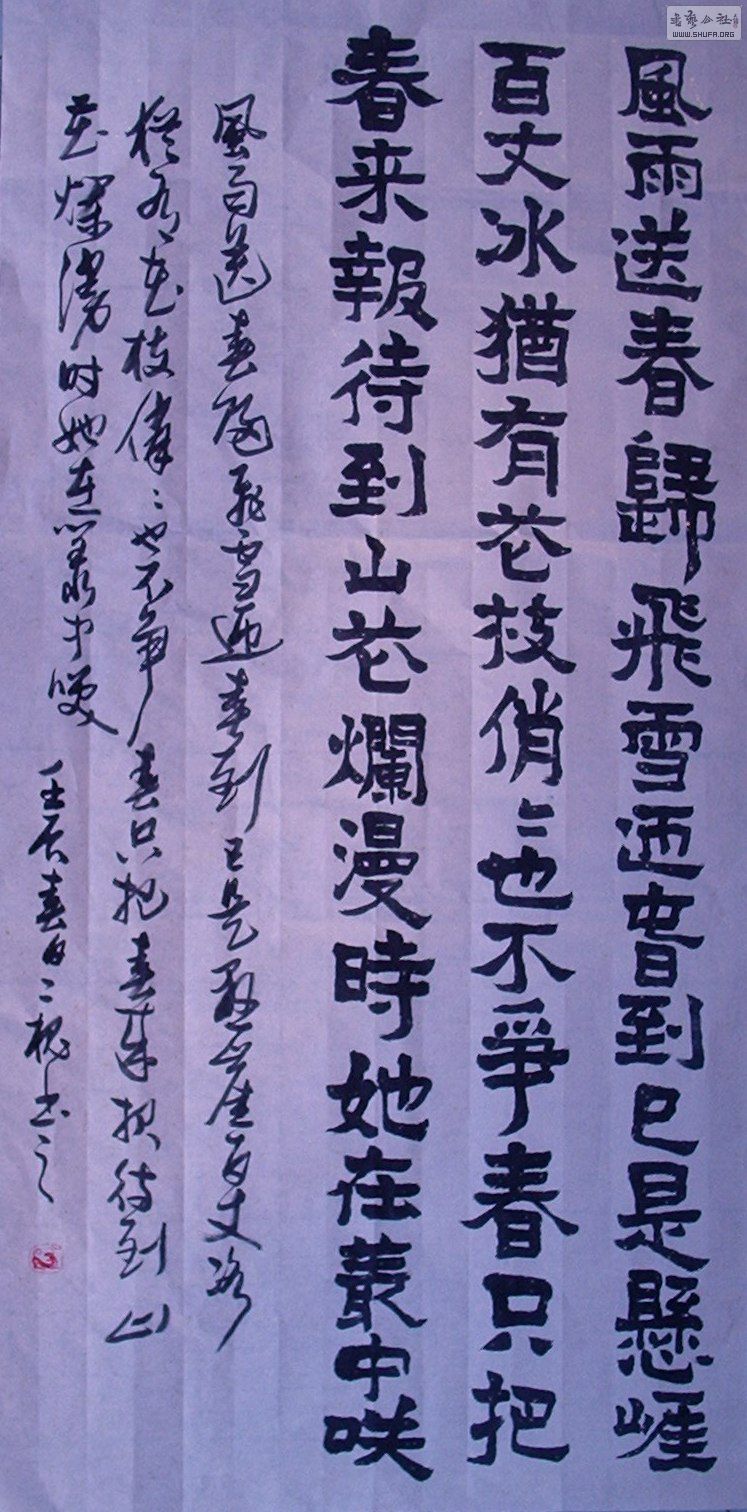 風雨送春歸飛雪迎旾到已是懸崖
百丈冰猶有花枝俏〻也不爭春只把
春来報待到山花爛漫時她在叢中咲
風雨送春歸飛雪迎春到已是懸崖百丈冰
猶有花枝俏〻也不争春只把春来报待到山
花爛漫时她在叢中咲
壬辰春日二槐书之
书艺公社
WWW.SHUFA.ORG